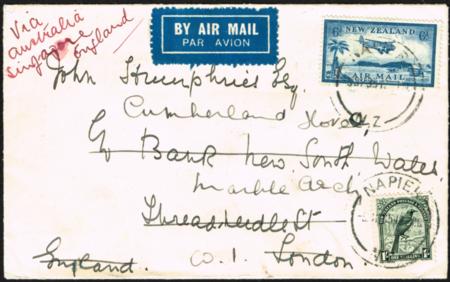 Via
Australia
Singapore
England
BY AIR MAIL
PAR AVION
NEW ZEALAND
6D
AIR MAIL
John Humphries Esq
Cumberland
C/o Bank New South Wales
Marble Arch
Threadneedle St
W.1. London
England.
NAPIER